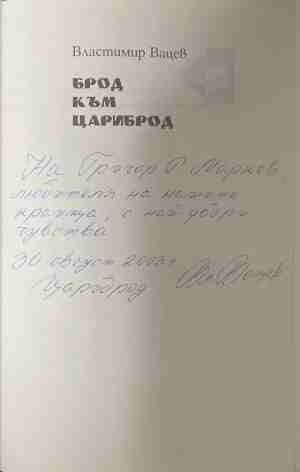 Властимир Вацев
БРОД
КЪМ
ЦАРИБРОД
На Григор Г. Марков,
любителя на нашето
краище, с най-добри
чувства
30 август 2003 г.
Цариброд